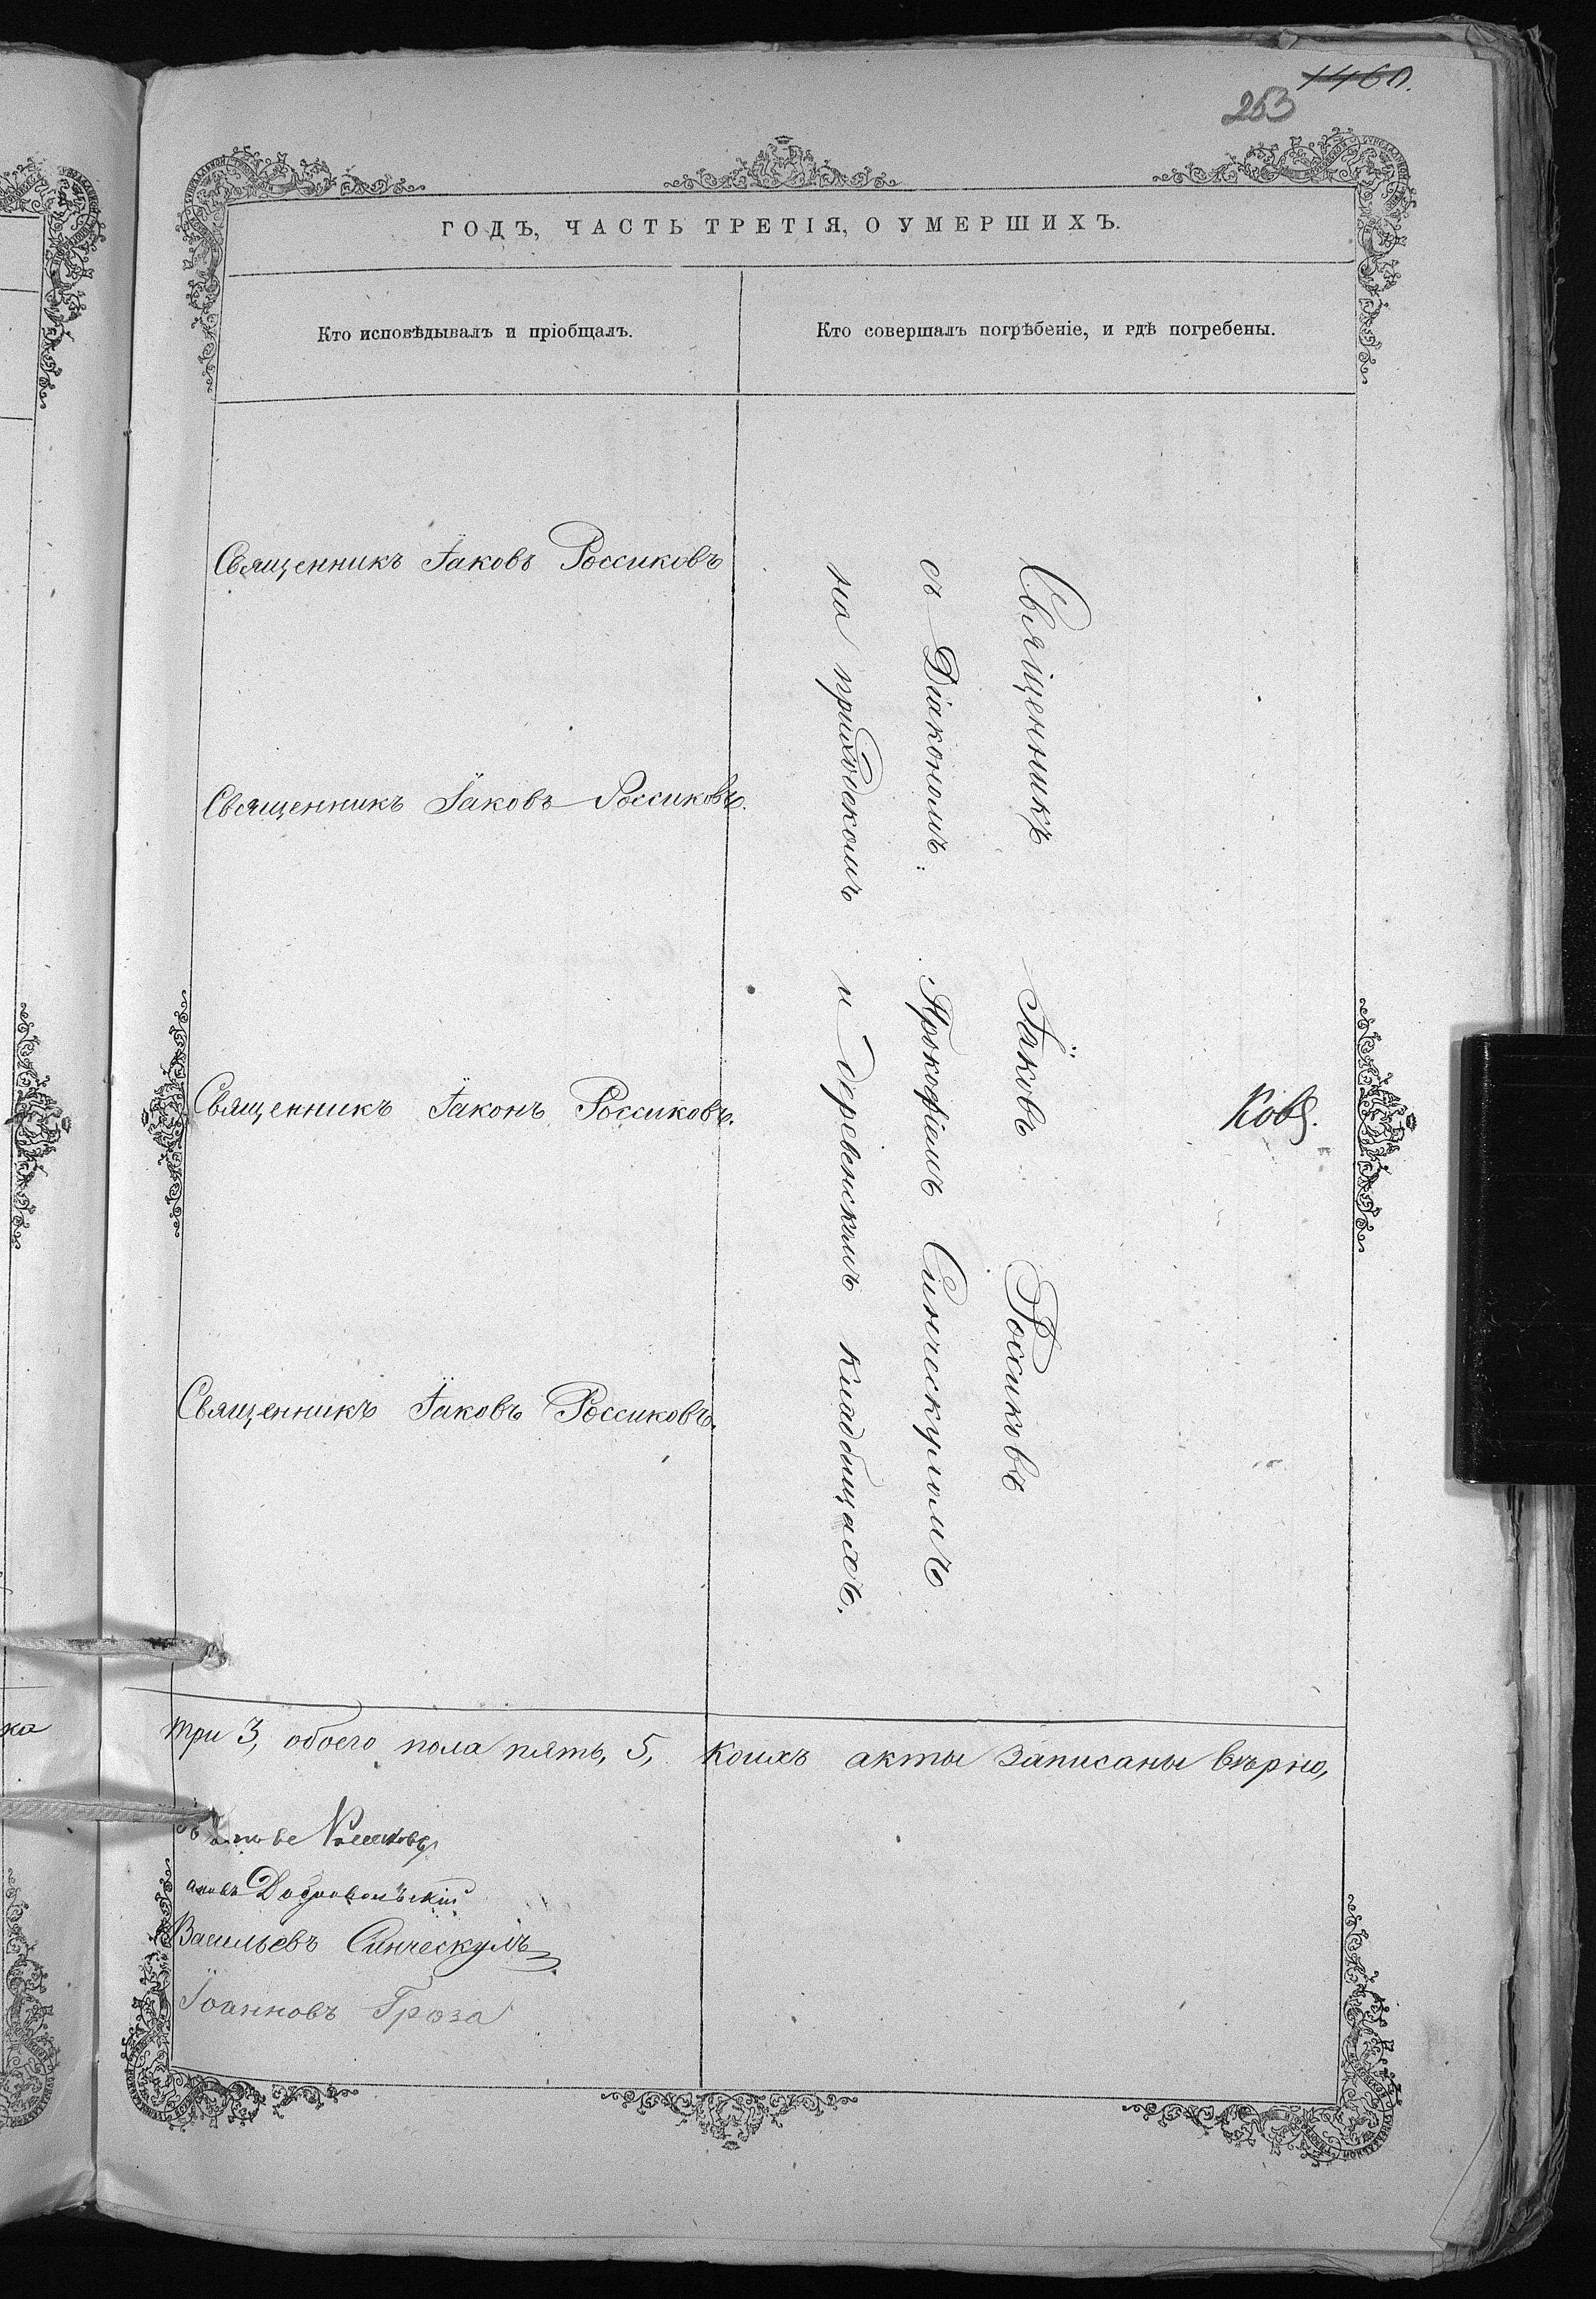 1460.
253
ГОДЪ, ЧАСТЬ ТРЕТІЯ, О УМЕРШИХЪ.
Кто исповѣдывалъ и пріобщалъ.
Кто совершалъ погрѣбеніе, и гдѣ погребены.
Священникъ Іаковъ Россиковъ
Священникъ Іаковъ Россиковъ.
Священникъ Іаковъ Россиковъ.
Священникъ Іаковъ Россиковъ.
Священникъ Іаковъ Россиковъ
съ Діакономъ Прокофіемъ Синческуломъ
на приходскомъ и деревенскомъ кладбищахъ.
Ковѣ.
ка
три 3, обоего пола пять, 5, коихъ акты записаны вѣрно,
Добровольскій
Васильевъ Синческулъ
Іоанновъ Гроза